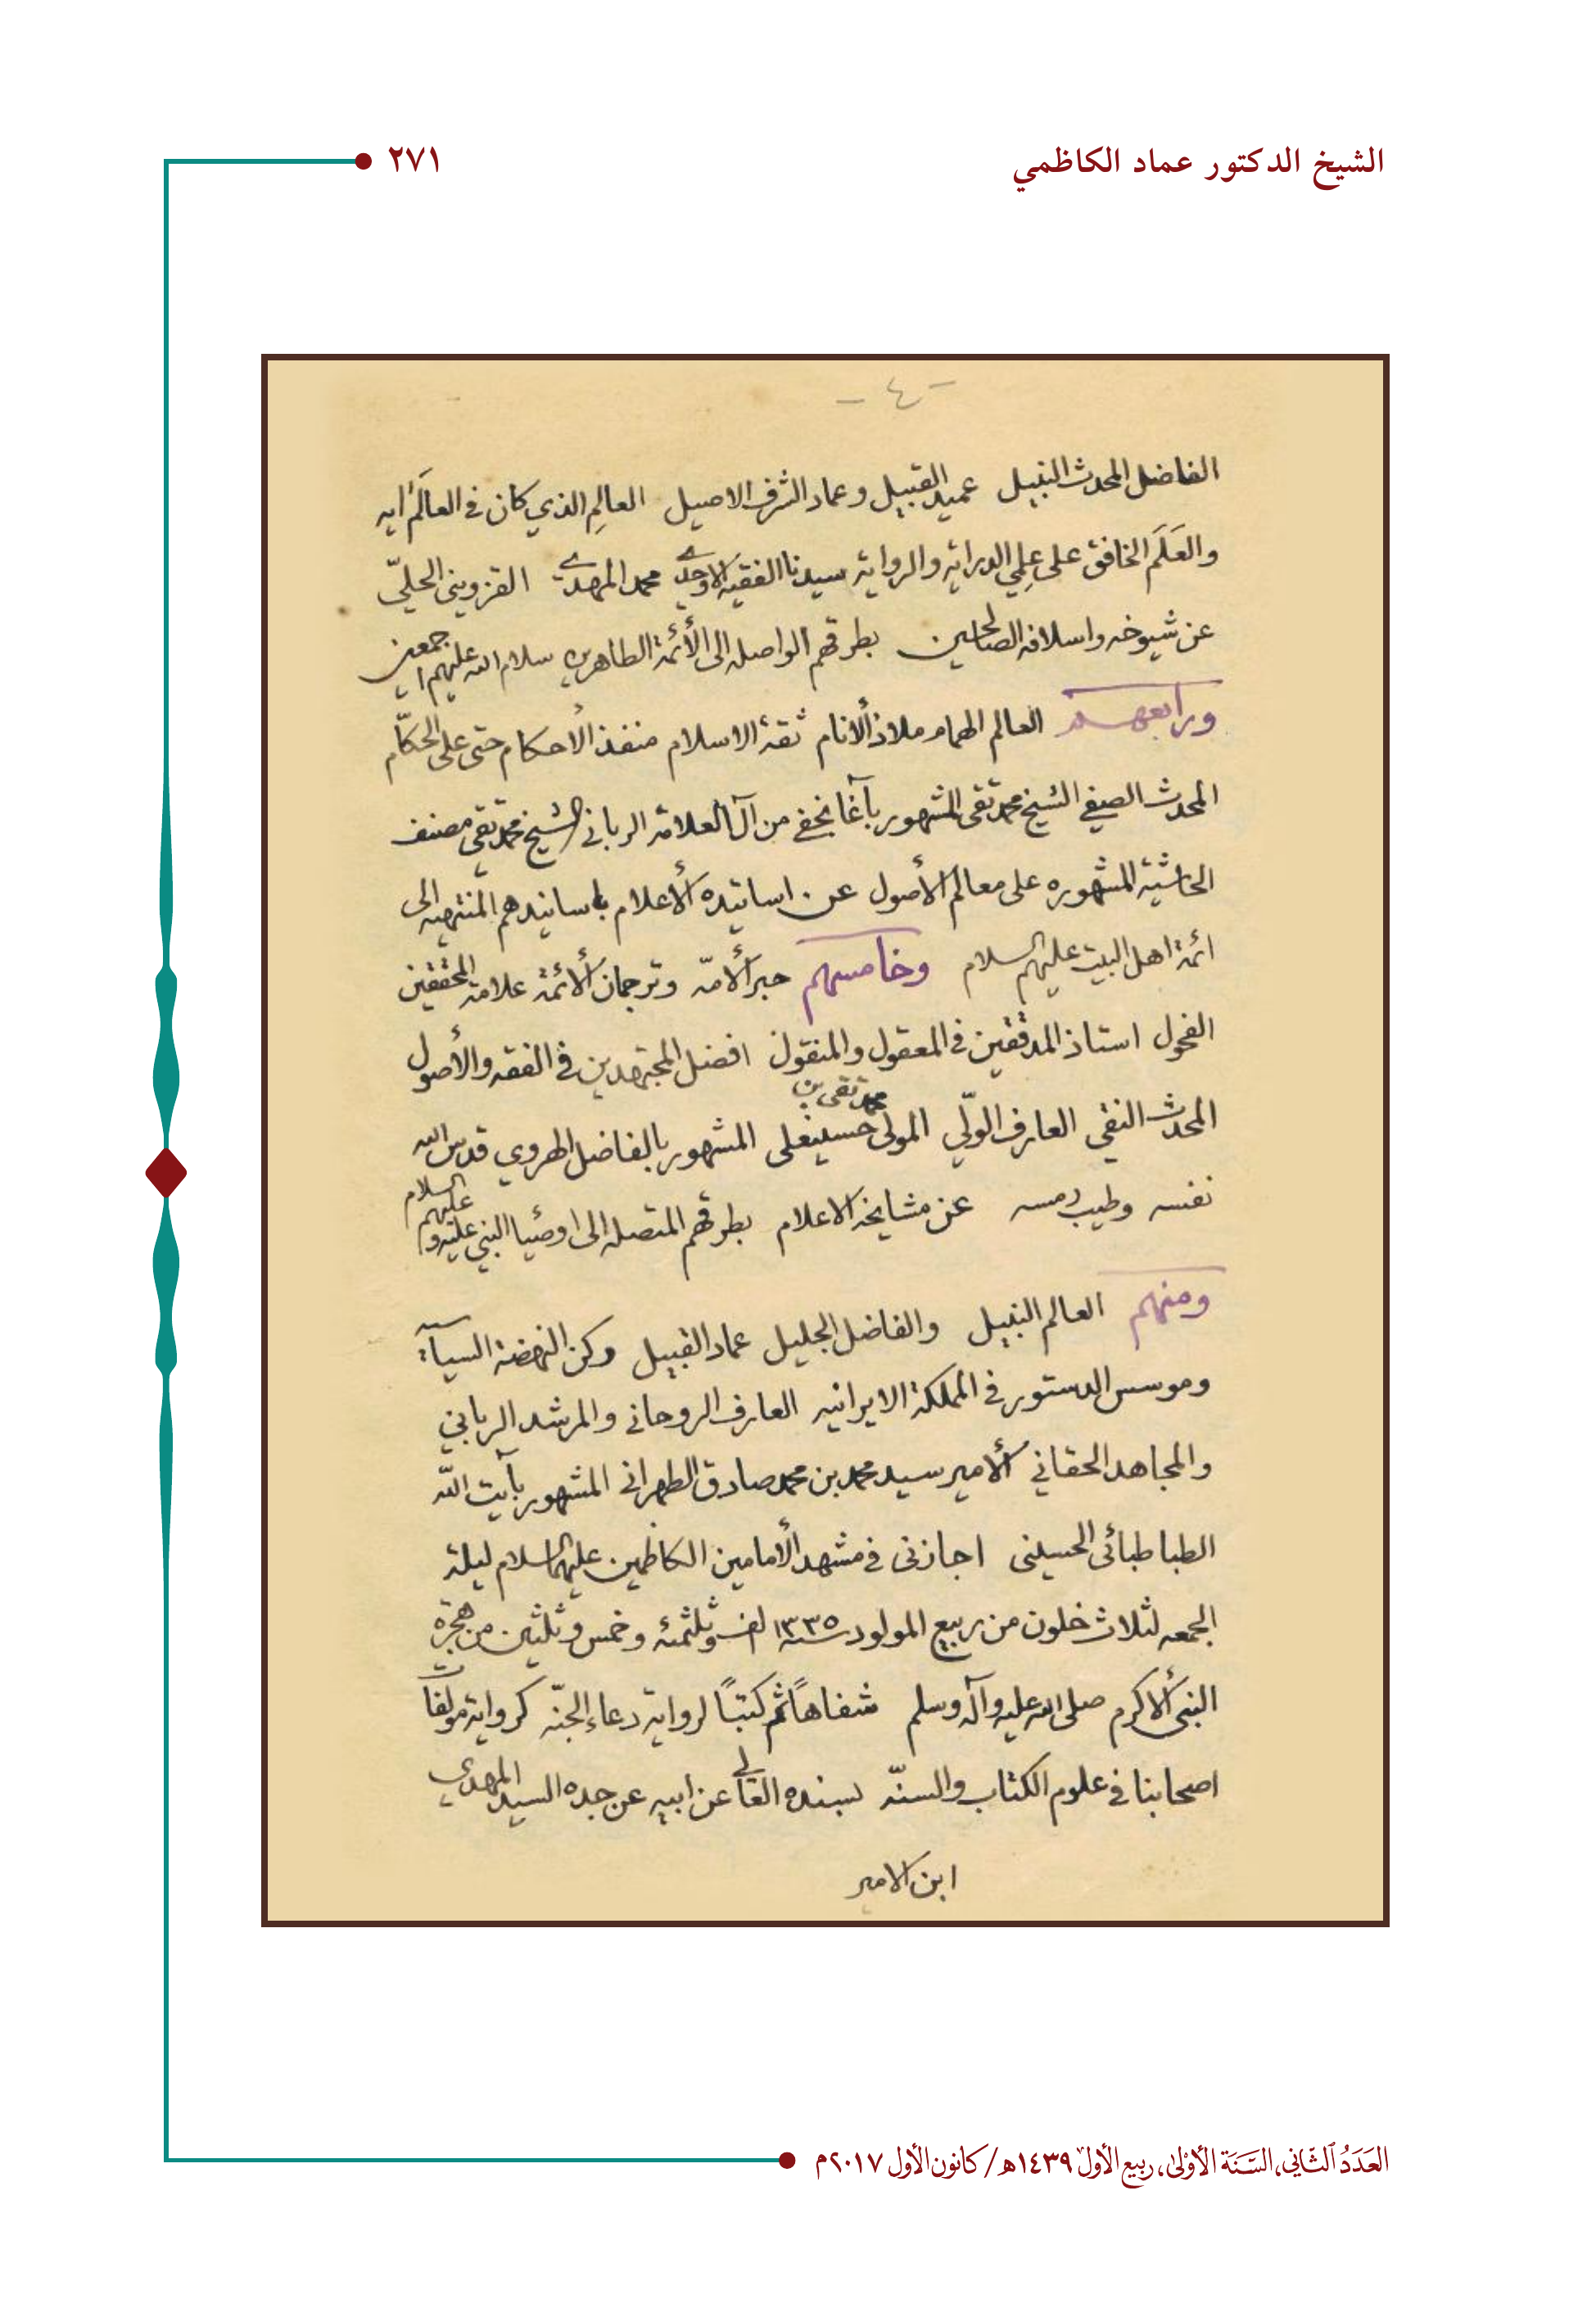 الشيخ الدكتور عماد الكاظمي
٢٧١
- ٤ -
الفاضل المحدث النبيل عميد القبيل وعماد الشرف الاصيل العالِم الذي كان في العالَم آيه
والعَلَم الخافق على علمي الدرايه والروايه سيدنا الفقيه الاوحدي محمد المهدي القزويني الحليّ
عن شيوخه واسلافه الصالحين بطرقهم الواصله الى الأئمة الطاهرين سلام الله عليهم اجمعين
ورابعهم العالم الهمام ملاذ الأنام ثقة الاسلام منفذ الأحكام حتى على الحكّام
المحدث الصفي الشيخ محمد تقي المشهور بآغا نجفي من آل العلامة الرباني الشيخ محمد تقي مصنف
الحاشية المشهوره على معالم الأصول عن اساتيده الأعلام باسانيدهم المنتهيه الى
ائمة اهل البيت عليهم السلام وخامسهم حبر الأمّه وترجمان الأئمة علامة المحققين
الفحول استاذ المدققين في المعقول والمنقول افضل المجتهدين في الفقه والأصول
المحدث التقي العارف الولّي المولى محمد تقي بن حسينعلي المشهور بالفاضل الهروي قدس الله
نفسه وطيب رمسه عن مشايخه الاعلام بطرقهم المتصله الى اوصياء النبي عليه وعليهم السلام
ومنهم العالم النبيل والفاضل الجليل عماد القبيل وركن النهضة السياسية
وموسس الدستور في المملكة الايرانيه العارف الروحاني والمرشد الرباني
والمجاهد الحقاني الأمير سيد محمد بن محمد صادق الطهراني المشهور بآيت الله
الطباطبائى الحسيني اجازنى في مشهد الأمامين الكاظمين عليهما السلام ليلة
الجمعه لثلاث خلون من ربيع المولود سنه ١٣٣٥ الف وثلثمئه وخمس وثلثين من هجرة
النبى الأكرم صلى الله عليه وآله وسلم شفاهاً ثم كتباً لرواية دعاء الجنّه كرواية مولفات
اصحابنا في علوم الكتاب والسنّه بسنده العالي عن ابيه عن جده السيد المهدي
ابن الامير
العَدَدُ الثّاني، السَّنَة الأوْلىٰ، ربيع الأول ١٤٣٩هـ/ كانون الأول ٢٠١٧م